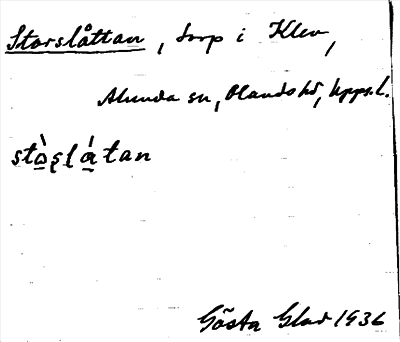 Storslåttan, torp i Klev,
Alunda sn, Olands hd, Upps.l.
stò̱ʂlá̱tan
Gösta Glad 1936